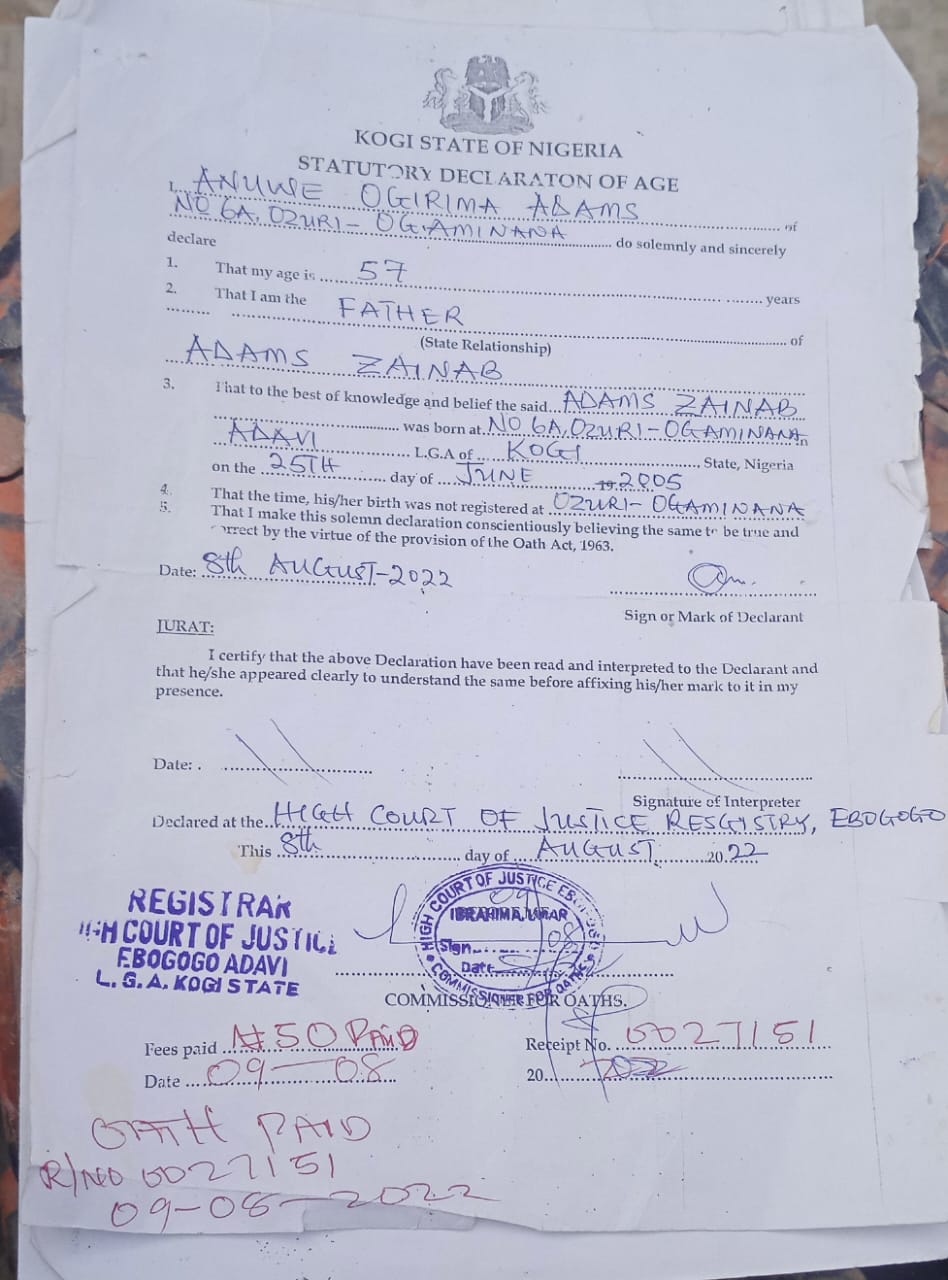 KOGI STATE OF NIGERIA
STATUTORY DECLARATON OF AGE
I, ANUWE OGIRIMA ADAMS of
NO 6A, OZURI - OGAMINANA do solemnly and sincerely
declare
1. That my age is 57 years
2. That I am the FATHER of
(State Relationship)
ADAMS ZAINAB
3. That to the best of knowledge and belief the said ADAMS ZAINAB
was born at NO 6A, OZURI-OGAMINANA in
ADAVI L.G.A of KOGI State, Nigeria
on the 25TH day of JUNE 19 2005
4. That the time, his/her birth was not registered at OZURI-OGAMINANA
5. That I make this solemn declaration conscientiously believing the same to be true and
correct by the virtue of the provision of the Oath Act, 1963.
Date: 8th AUGUST-2022
Sign or Mark of Declarant
JURAT:
I certify that the above Declaration have been read and interpreted to the Declarant and
that he/she appeared clearly to understand the same before affixing his/her mark to it in my
presence.
Date:
Signature of Interpreter
Declared at the HIGH COURT OF JUSTICE RESGISTRY, EBOGOGO
This 8th day of AUGUST 2022
REGISTRAR
HIGH COURT OF JUSTICE
EBOGOGO ADAVI
L.G.A. KOGI STATE
HIGH COURT OF JUSTICE EBOGOGO
IBRAHIM A. UMAR
Sign
Date
COMMISSIONER FOR OATHS
COMMISSIONER FOR OATHS.
Fees paid ₦50 PAID Receipt No. 0027151
Date 09-08 20 2022
OATH PAID
R/NO 0027151
09-08-2022